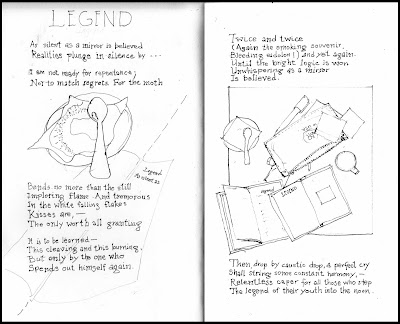 LEGEND
As silent as a mirror is believed
Realities plunge in silence by ...
I am not ready for repentance;
Nor to match regrets. For the moth
Legend
As silent as
Bends no more than the still
Imploring flame. And tremorous
In the white falling flakes
Kisses are,—
The only worth all granting
It is to be learned—
This cleaving and this burning,
But only by the one who
Spends out himself again.
Twice and twice
(Again the smoking souvenir,
Bleeding eidolon!) and yet again.
Until the bright logic is won
Unwhispering as a mirror
Is believed.
Then, drop by caustic drop, a perfect cry
Shall string some constant harmony,—
Relentless caper for all those who step
The legend of their youth into the noon.